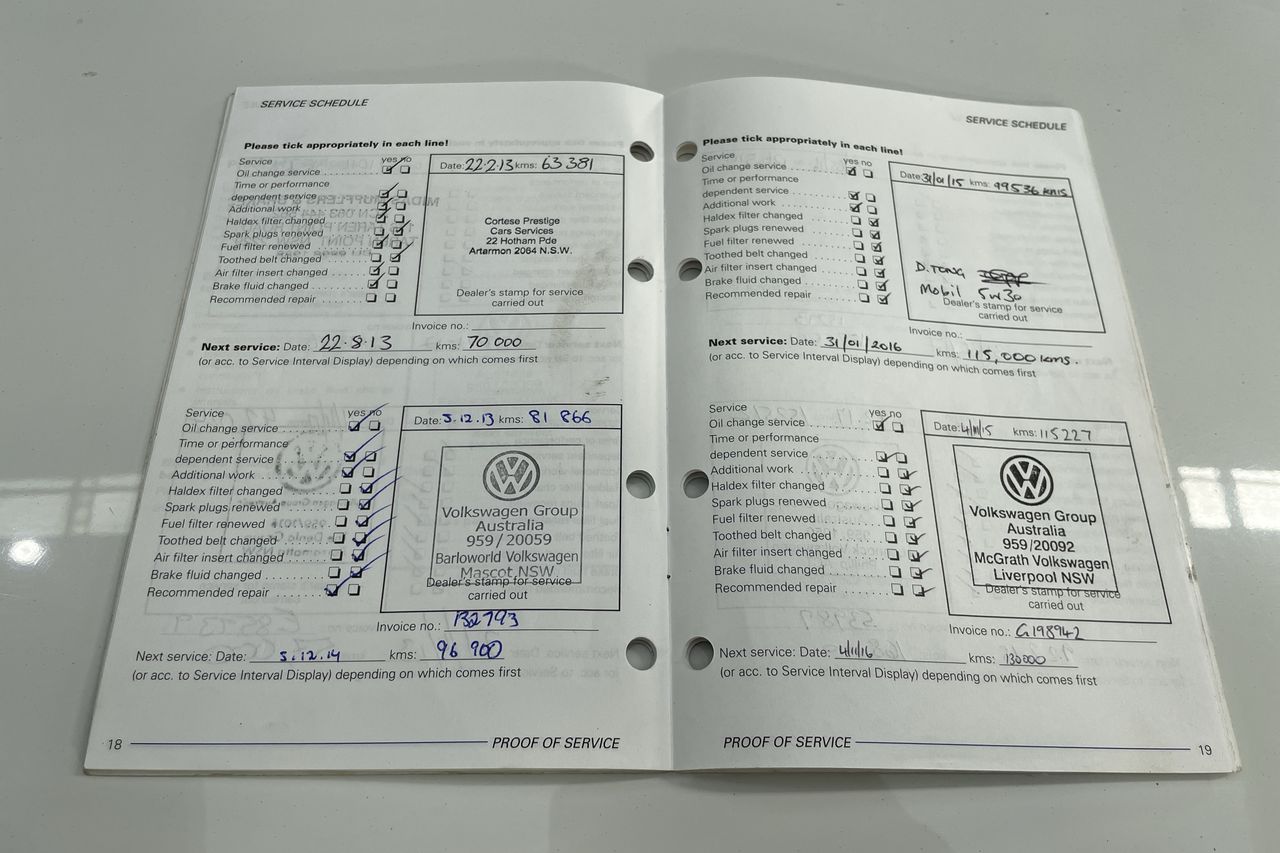 SERVICE SCHEDULE
Please tick appropriately in each line!
Service yes no
Oil change service
Time or performance
dependent service
Additional work
Haldex filter changed
Spark plugs renewed
Fuel filter renewed
Toothed belt changed
Air filter insert changed
Brake fluid changed
Recommended repair
Date: 22.2.13 kms: 63 381
Cortese Prestige
Cars Services
22 Hotham Pde
Artarmon 2064 N.S.W.
Dealer's stamp for service
carried out
Invoice no.:
Next service: Date: 22.8.13 kms: 70 000
(or acc. to Service Interval Display) depending on which comes first
Service yes no
Oil change service
Time or performance
dependent service
Additional work
Haldex filter changed
Spark plugs renewed
Fuel filter renewed
Toothed belt changed
Air filter insert changed
Brake fluid changed
Recommended repair
Date: 3.12.13 kms: 81 866
Volkswagen Group
Australia
959/20059
Barloworld Volkswagen
Mascot NSW
Dealer's stamp for service
carried out
Invoice no.: 132793
Next service: Date: 3.12.14 kms: 96 900
(or acc. to Service Interval Display) depending on which comes first
18 PROOF OF SERVICE
SERVICE SCHEDULE
Please tick appropriately in each line!
Service yes no
Oil change service
Time or performance
dependent service
Additional work
Haldex filter changed
Spark plugs renewed
Fuel filter renewed
Toothed belt changed
Air filter insert changed
Brake fluid changed
Recommended repair
Date: 31/01/15 kms: 99536 kms
D. TONG
Mobil 5w30
Dealer's stamp for service
carried out
Invoice no.:
Next service: Date: 31/01/2016 kms: 115,000 kms.
(or acc. to Service Interval Display) depending on which comes first
Service yes no
Oil change service
Time or performance
dependent service
Additional work
Haldex filter changed
Spark plugs renewed
Fuel filter renewed
Toothed belt changed
Air filter insert changed
Brake fluid changed
Recommended repair
Date: 4/11/15 kms: 115227
Volkswagen Group
Australia
959/20092
McGrath Volkswagen
Liverpool NSW
Dealer's stamp for service
carried out
Invoice no.: G198942
Next service: Date: 4/11/16 kms: 130000
(or acc. to Service Interval Display) depending on which comes first
PROOF OF SERVICE 19